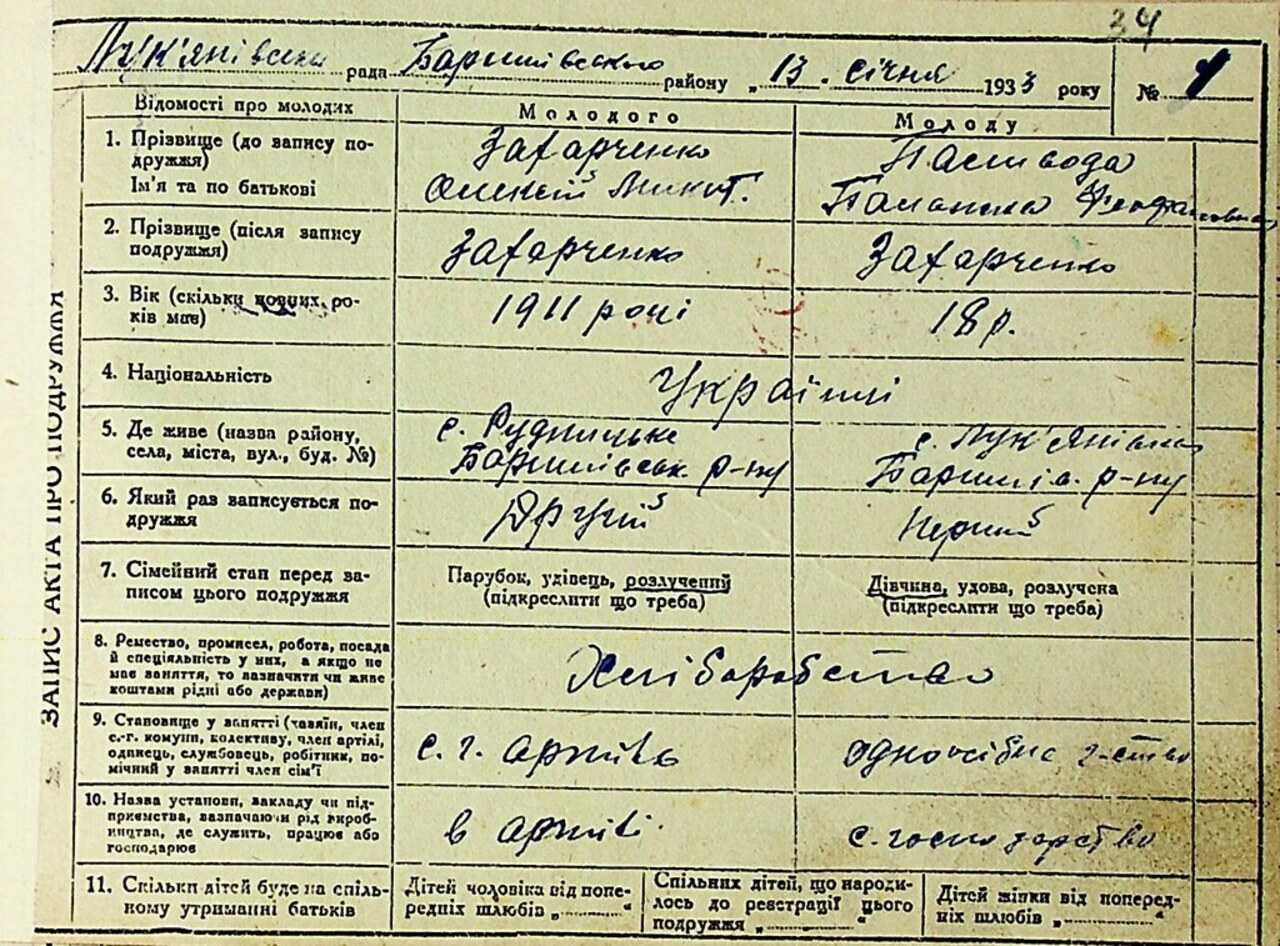 34
Лук'янівська рада Баришівського району „13. січня 1933 року № 1
Відомості про молодих
Молодого
Молоду
1. Прізвище (до запису по-
дружжя)
Ім'я та по батькові
Захарченко
Олексій Микит.
Пасивода
Паланка Феофановна
2. Прізвище (після запису
подружжя)
Захарченко
Захарченко
3. Вік (скільки повних ро-
ків мав)
1911 році
18 р.
4. Національність
Українці
5. Де живе (назва району,
села, міста, вул., буд. №)
с. Рудницьке
Баришівськ. р-ну
с. Лук'янівка
Баришів. р-ну
6. Який раз записується по-
дружжя
Другий
Перший
7. Сімейний стан перед за-
писом цього подружжя
Парубок, удівець, розлучений
(підкреслити що треба)
Дівчина, удова, розлучена
(підкреслити що треба)
8. Ремество, промисел, робота, посада
й спеціяльність у них, а якщо не
має заняття, то зазначити чи живе
коштами рідні або держави)
Хліборобство
9. Становище у занятті (хазяїн, член
с.-г. комуни, колективу, член артілі,
одинець, службовець, робітник, по-
мічний у занятті член сім'ї
с. г. артіль
одноосібне г-ство
10. Назва установи, закладу чи під-
приємства, вазначаючи рід вироб-
ництва, де служить, працює або
господарює
в артілі.
с. господарство
11. Скільки дітей буде на спіль-
ному утриманні батьків
Дітей чоловіка від попе-
редніх шлюбів „ “
Спільних дітей, що народи-
лось до реєстрації цього
подружжя „ “
Дітей жінки від поперед-
ніх шлюбів „ “
ЗАПИС АКТА ПРО ПОДРУЖЖЯ